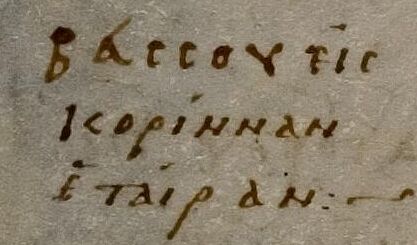 βάσσου εἰς
κορίνναν
ἑταίραν:~